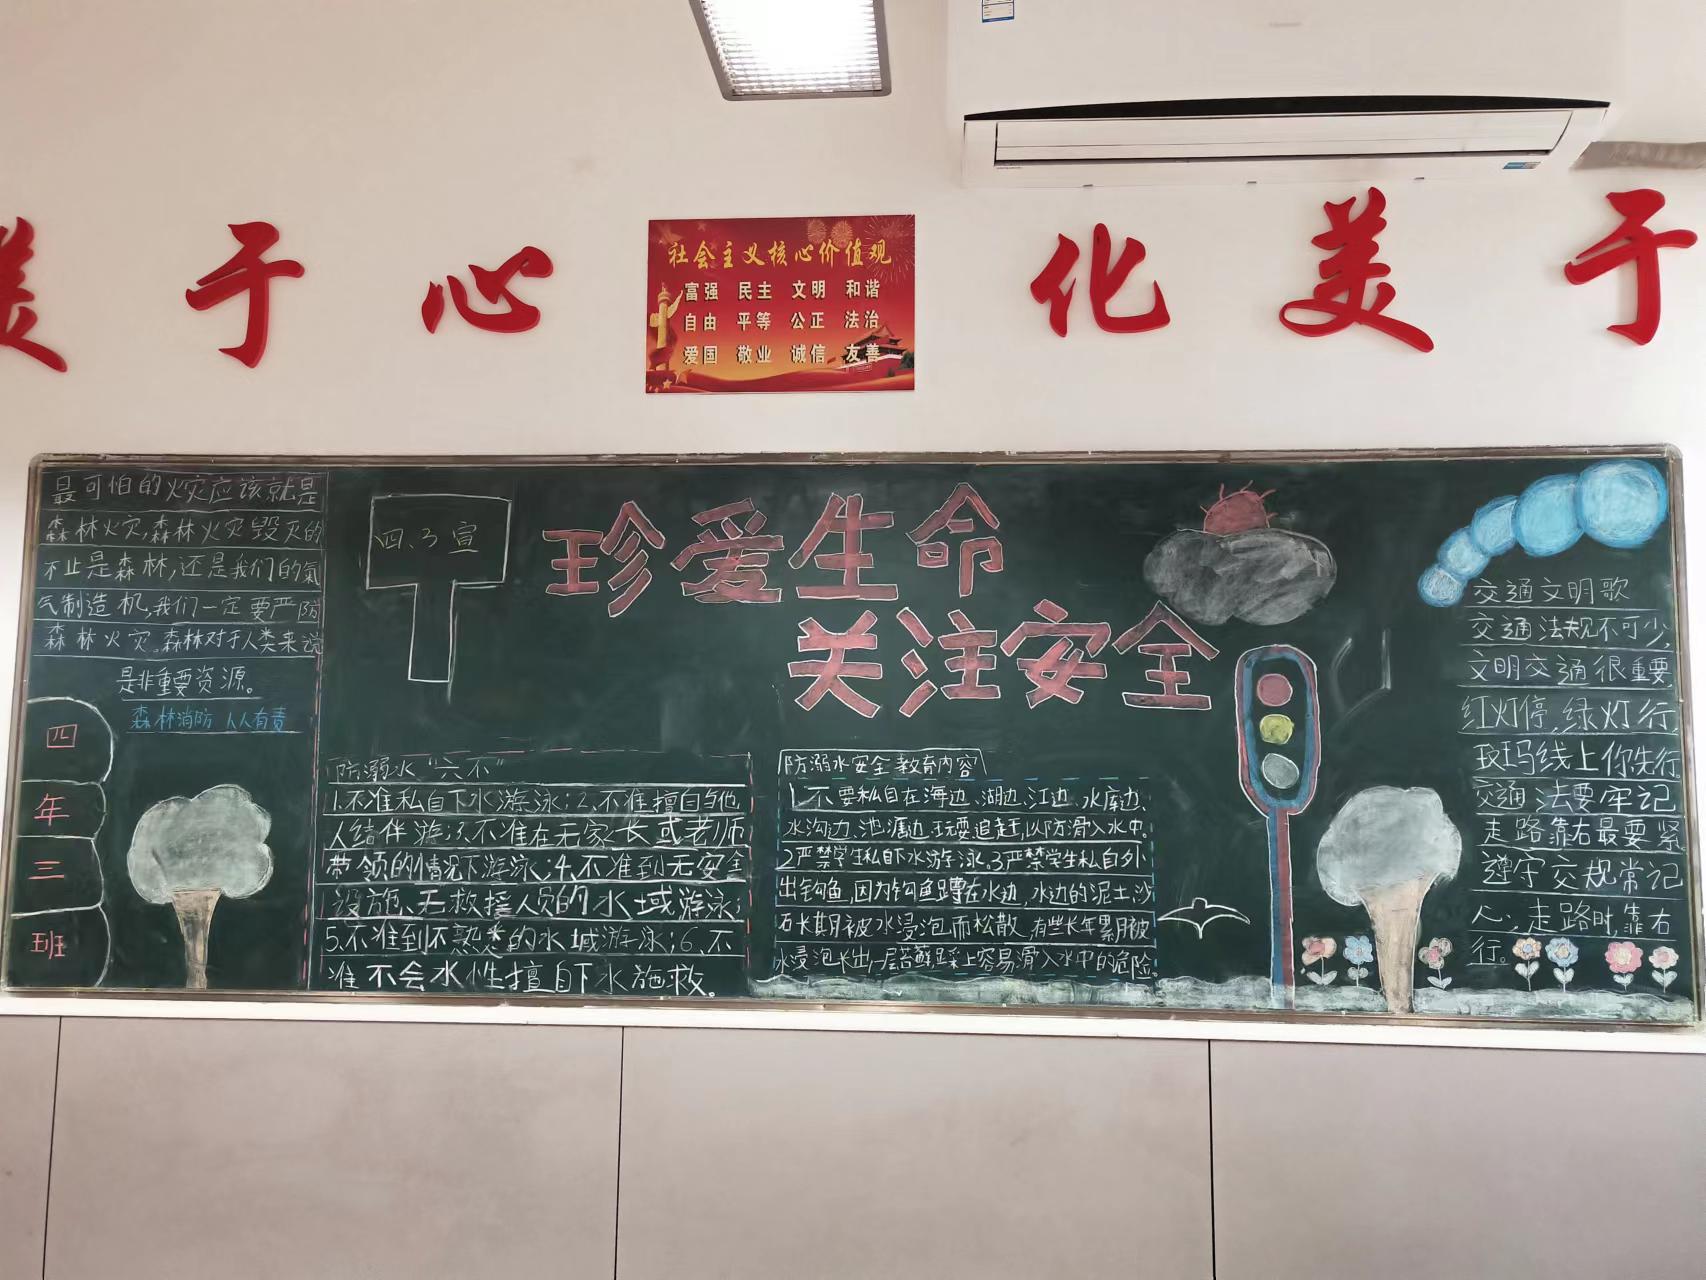 美 于 心
社会主义核心价值观
富强 民主 文明 和谐
自由 平等 公正 法治
爱国 敬业 诚信 友善
化 美 于
最可怕的火灾应该就是
森林火灾,森林火灾毁灭的
不止是森林,还是我们的氧
气制造机,我们一定要严防
森林火灾。森林对于人类来说
是非重要资源。
森林消防 人人有责
四
年
三
班
四、3宣
珍爱生命
关注安全
防溺水“六不”
1.不准私自下水游泳;2.不准擅自与他
人结伴游;3.不准在无家长或老师
带领的情况下游泳;4.不准到无安全
设施、无救援人员的水域游泳;
5.不准到不熟悉的水域游泳;6.不
准不会水性擅自下水施救。
防溺水安全教育内容
1.不要私自在海边、湖边、江边、水库边、
水沟边、池塘边玩耍追赶,以防滑入水中。
2严禁学生私自下水游泳。3严禁学生私自外
出钓鱼,因为钓鱼蹲在水边,水边的泥土、沙
石长期被水浸泡而松散,有些长年累月被
水浸泡长出一层苔藓,踩上容易滑入水中的危险。
交通文明歌
交通法规不可少,
文明交通很重要,
红灯停,绿灯行,
斑玛线上你先行。
交通法要牢记
走路靠右最要紧
遵守交规常记
心;走路时,靠右
行。